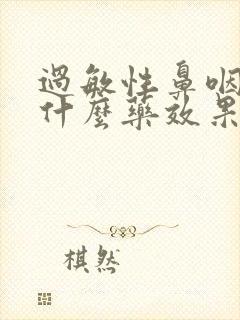 過敏性鼻咽
什麼藥效果
棋然